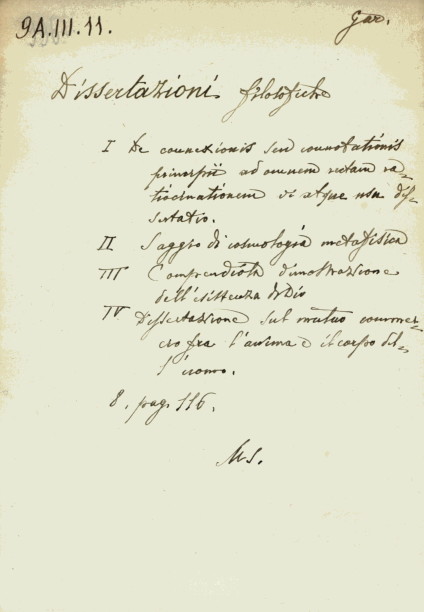 9A.III.11.
Gar.
Dissertazioni filosofiche
I De connexionis seu connotationis
principii ad omnem rectam ra=
tiocinationem vi atque usu dis=
sertatio.
II Saggio di cosmologia metafisica
III Comprendiosa dimostrazione
dell'esistenza di Dio
IV Dissertazione sul mutuo commer=
cio fra l'anima e il corpo del=
l'uomo.
8. pag. 116.
Ms.